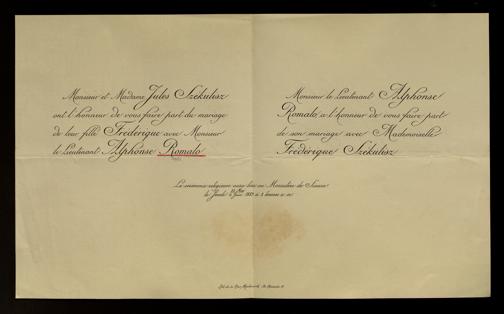 Monsieur et Madame Jules Szekulisz
ont l'honneur de vous faire part du mariage
de leur fille Frédérique avec Monsieur
le Lieutenant Alphonse Romalo
Monsieur le Lieutenant Alphonse
Romalo a l'honneur de vous faire part
de son mariage avec Mademoiselle
Frédérique Szekulisz
La cérémonie religieuse aura lieu au Monastère de Sinaia
le Jeudi 1889 à 2 heures p. m.